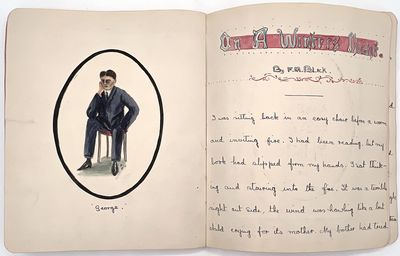 "George."
On A Winters Night
By F.R.
I was sitting back in an cosy chair before a warm
and inviting fire. I had been reading, but my
book had slipped from my hands. I sat think-
ing and staring into the fire. It was a terrible
night out side, the wind was howling like a lost
child crying for its mother. My butler had tired